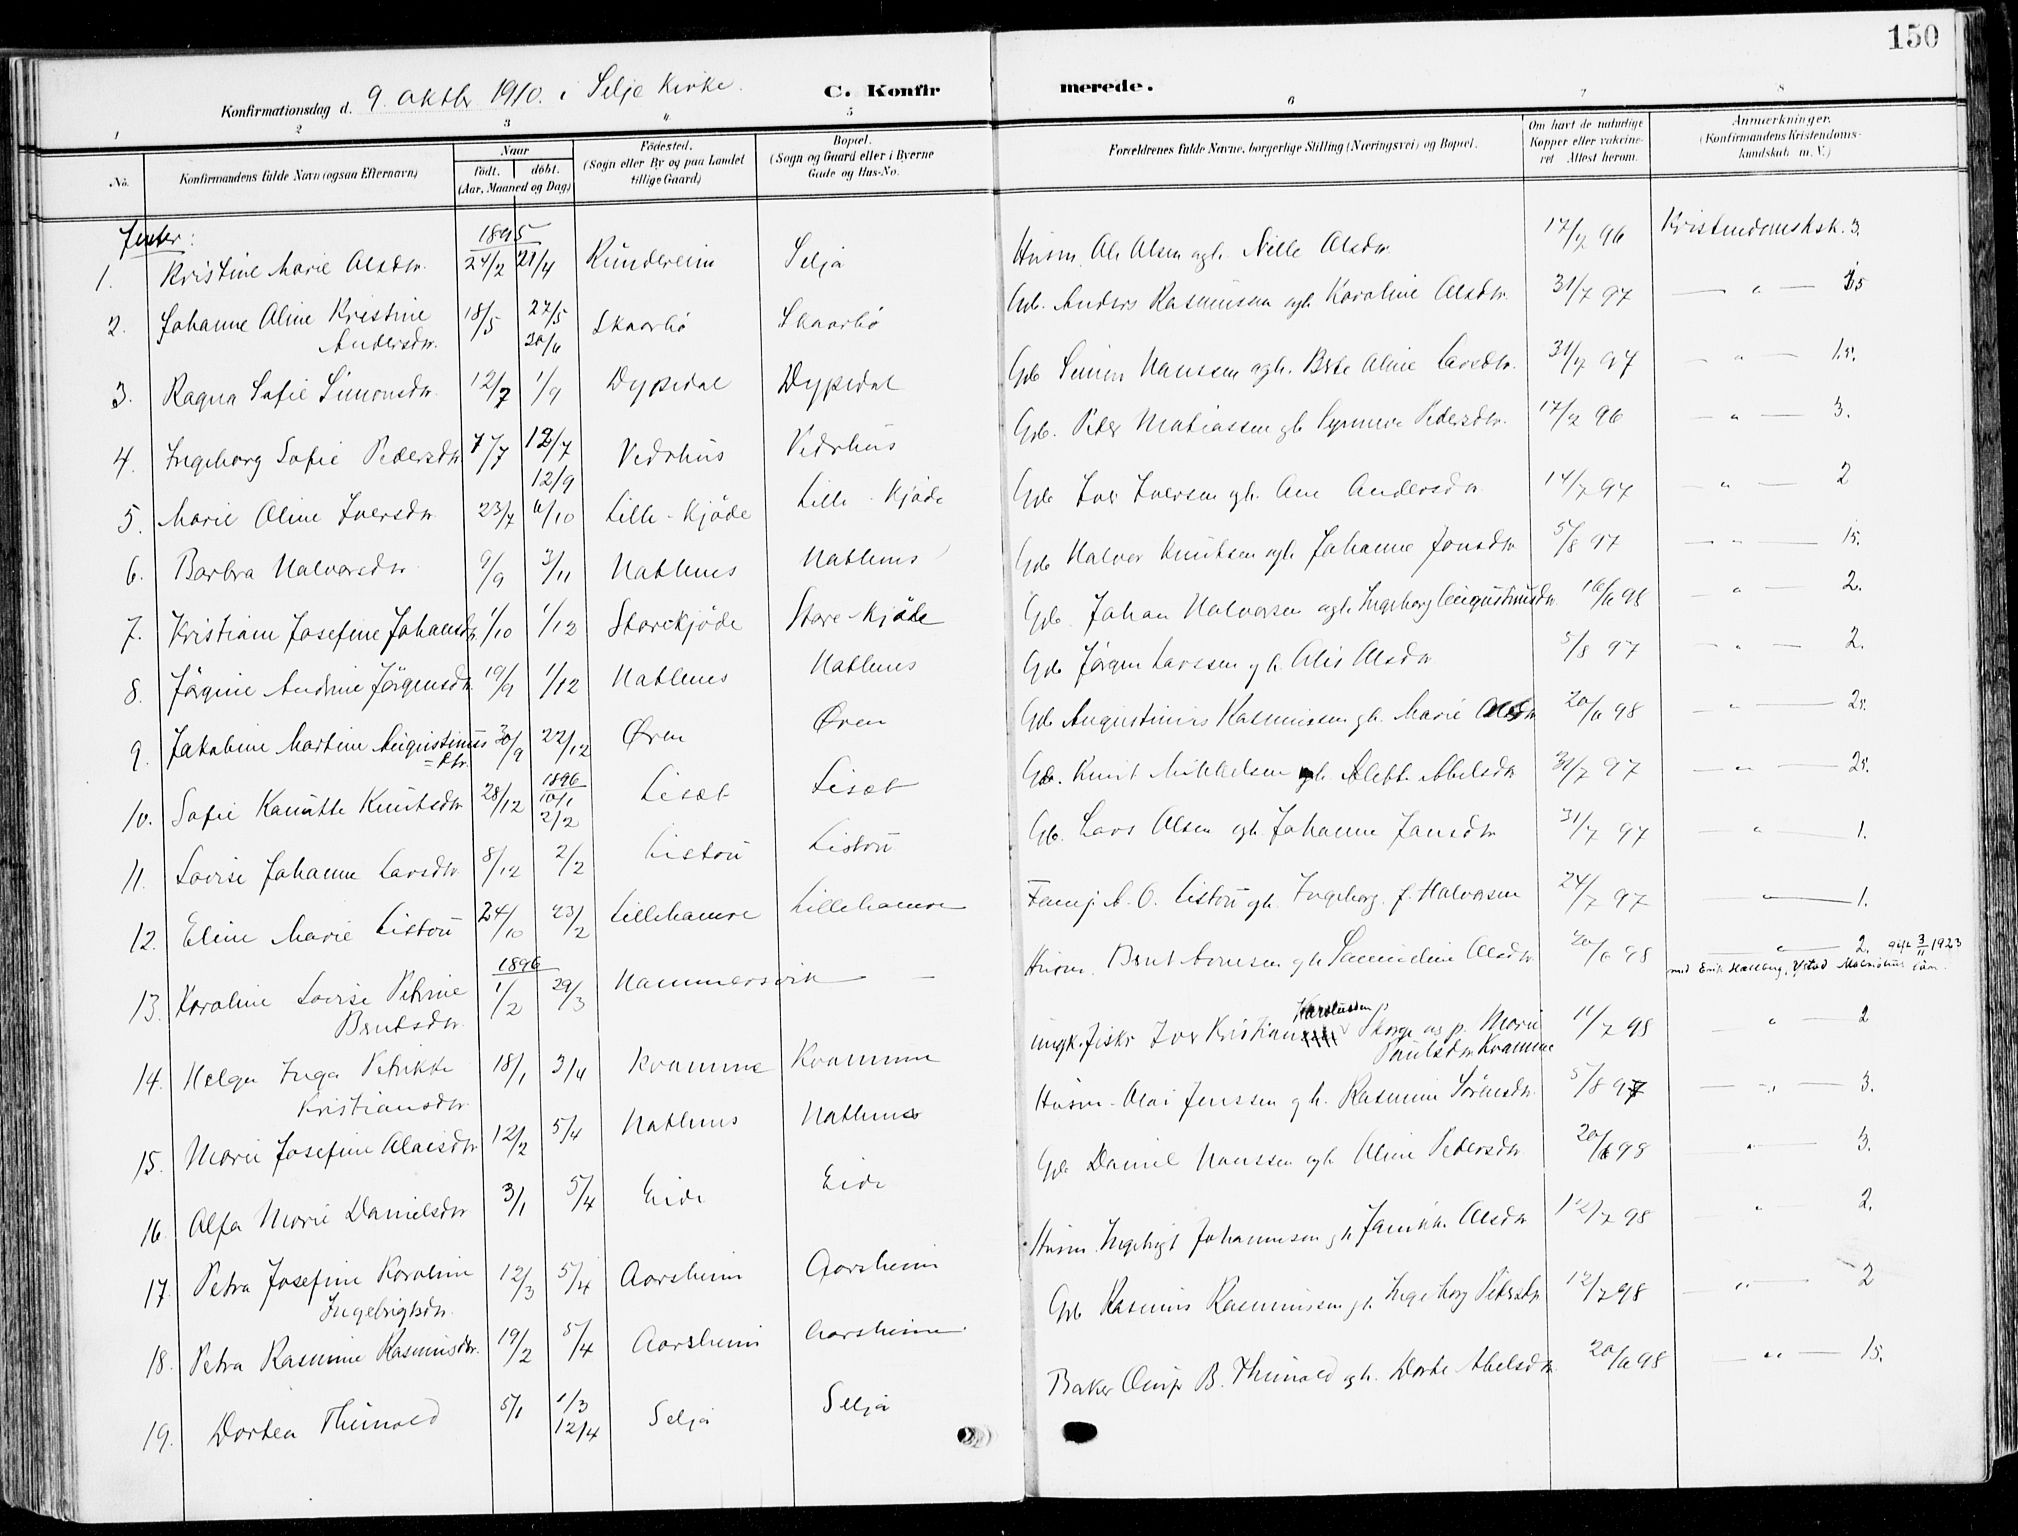 150
Konfirmationsdag d. 9. Oktbr 1910. i Selje Kirke.
C. Konfirmerede.
1 2 3 4 5 6 7 8
No. Konfirmandens fulde Navn (ogsaa Efternavn) Naar født. døbt. (Aar, Maaned og Dag) Fødested. (Sogn eller By og paa Landet tillige Gaard) Bopæl. (Sogn og Gaard eller i Byerne Gade og Hus-No. Forældrenes fulde Navne, borgerlige Stilling (Næringsvei) og Bopæl. Om havt de naturlige Kopper eller vakcineret. Attest herom. Anmærkninger. (Konfirmandens Kristendomskundskab m. V.)
Jenter:
1895
1. Kristine Marie Olsdtr. 24/2 21/4 Rundereim Selja Husm. Ole Olsen og h. Nille Olsdtr. 17/7 96 Kristendomsksk. 3.
2. Johanne Oline Kristine Andersdtr. 18/5 27/5 30/6 Skaarbø Skaarbø Gbr. Anders Rasmussen og h. Karoline Olsdtr. 31/7 97 — " — 1.5
3. Ragna Sofie Simonsdtr. 12/7 1/9 Dypedal Dypedal Gbr. Simon Hanssen og h. Brte Oline Larsdtr. 31/7 97 — " — 1.5.
4. Ingeborg Sofie Pedersdtr. 7/7 12/7 12/9 Vedvhus Vedvhus Gbr. Peder Matiassen g h Synneve Pedersdtr. 17/7 96 — " — 3.
5. Marie Oline Iversdtr. 23/7 6/10 Lille-Kjøde Lille-Kjøde Gbr Iver Iversen g h. Ane Andersdtr. 14/7 97 — " — 2
6. Barbra Halvorsdtr. 9/9 3/11 Hatlenes Hatlenes Gbr Halvor Knutsen og h. Johanne Jonsdtr 5/8 97 — " — 1.5.
7. Kristiane Josefine Johansdtr. 1/10 1/12 Storekjøde Store-Kjøde Gbr. Johan Halvorsen og h. Ingeborg Augustinusdtr. 10/6 98 — " — 2.
8. Jørgine Andrine Jørgensdtr. 19/9 1/12 Hatlenes Hatlenes Gbr Jørgen Larssen g h. Olis Olsdtr 5/8 97 — " — 2.
9. Jakobine Martine Augustinusdtr. 30/9 22/12 Øren Øren Gbr Augustinus Rasmussen g h. Marie Olsdtr 20/6 98 — " — 2.5.
10. Sofie Kanutte Knutsdtr 28/12 1896 10/1 2/2 Lisæt Lisæt Gbr. Knut Mikkelsen g h. Alette Abelsdtr 31/7 97 — " — 2.5.
11. Lovise Johanne Larsdtr 8/12 2/2 Listou Listou Gbr. Lars Olsen og h. Johanne Jansdtr 31/7 97 — " — 1.
12. Eline Marie Listou 24/10 23/2 Lillehamre Lillehamre A. O. Listou g h. Ingeborg f. Halvorsen 24/7 97 — " — 1.
1896
13. Karoline Lovise Petrine Brntsdtr 1/2 29/3 Hammersvik — Husm. Brnt Arnesen g h Samueline Olsdtr 20/6 98 — " — 2. gift 3/11 1923
med Emil Hallberg, Ystad Malmöhus län.
14. Helga Inga Petrikke Kristiansdtr 18/1 3/4 Kvamme Kvamme ungk. fisker Iver Kristian Karolussen Skorge og p. Marie Paulsdtr Kvamme 11/7 98 — " — 2
15. Marie Josefine Olaisdtr 12/2 5/4 Hatlenes Hatlenes Husm. Olai Jenssen g h. Rasmine Sörensdtr. 5/8 97 — " — 3.
16. Alfa Marie Danielsdtr 3/1 5/4 Eide Eide Gbr Daniel Hanssen og h Oline Pedersdtr 20/6 98 " — 3.
17. Petra Josefine Karoline Ingebrigtsdtr. 12/3 5/4 Aarsheim Aarsheim Husm. Ingebrigt Johannesen g h Janikke Olsdtr 12/7 98 — " — 2.
18. Petra Rasmine Rasmusdtr. 19/2 5/4 Aarsheim Aarsheim Gbr Rasmus Rasmussen g h. Ingeborg Pedersdtr 12/7 98 — " — 2
19. Dortea Thunold 5/1 1/3 12/4 Selja Selja Baker B. Thunold og h. Dorte Abelsdtr 20/6 98 — " — 1.5.